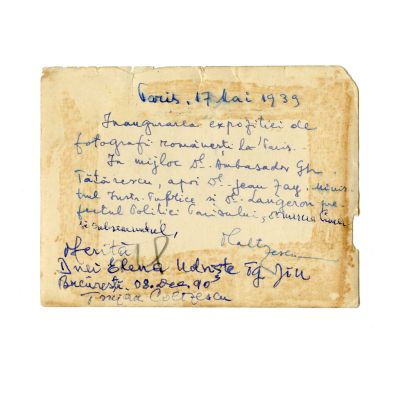 Paris, 17 Mai 1939
Inaugurarea expoziției de
fotografii românești la Paris.
In mijloc Dl. Ambasador Gh.
Tătărescu, apoi Dl. Jean Zay, Minis
trul Instr. Publice și Dl. Langeron pre
fectul Poliției Parisului,
și subsemnatul,
Coltzescu
Oferită
Dnei Elena Udriște Tg. Jiu
București. 08. Dec. 90
Coltzescu